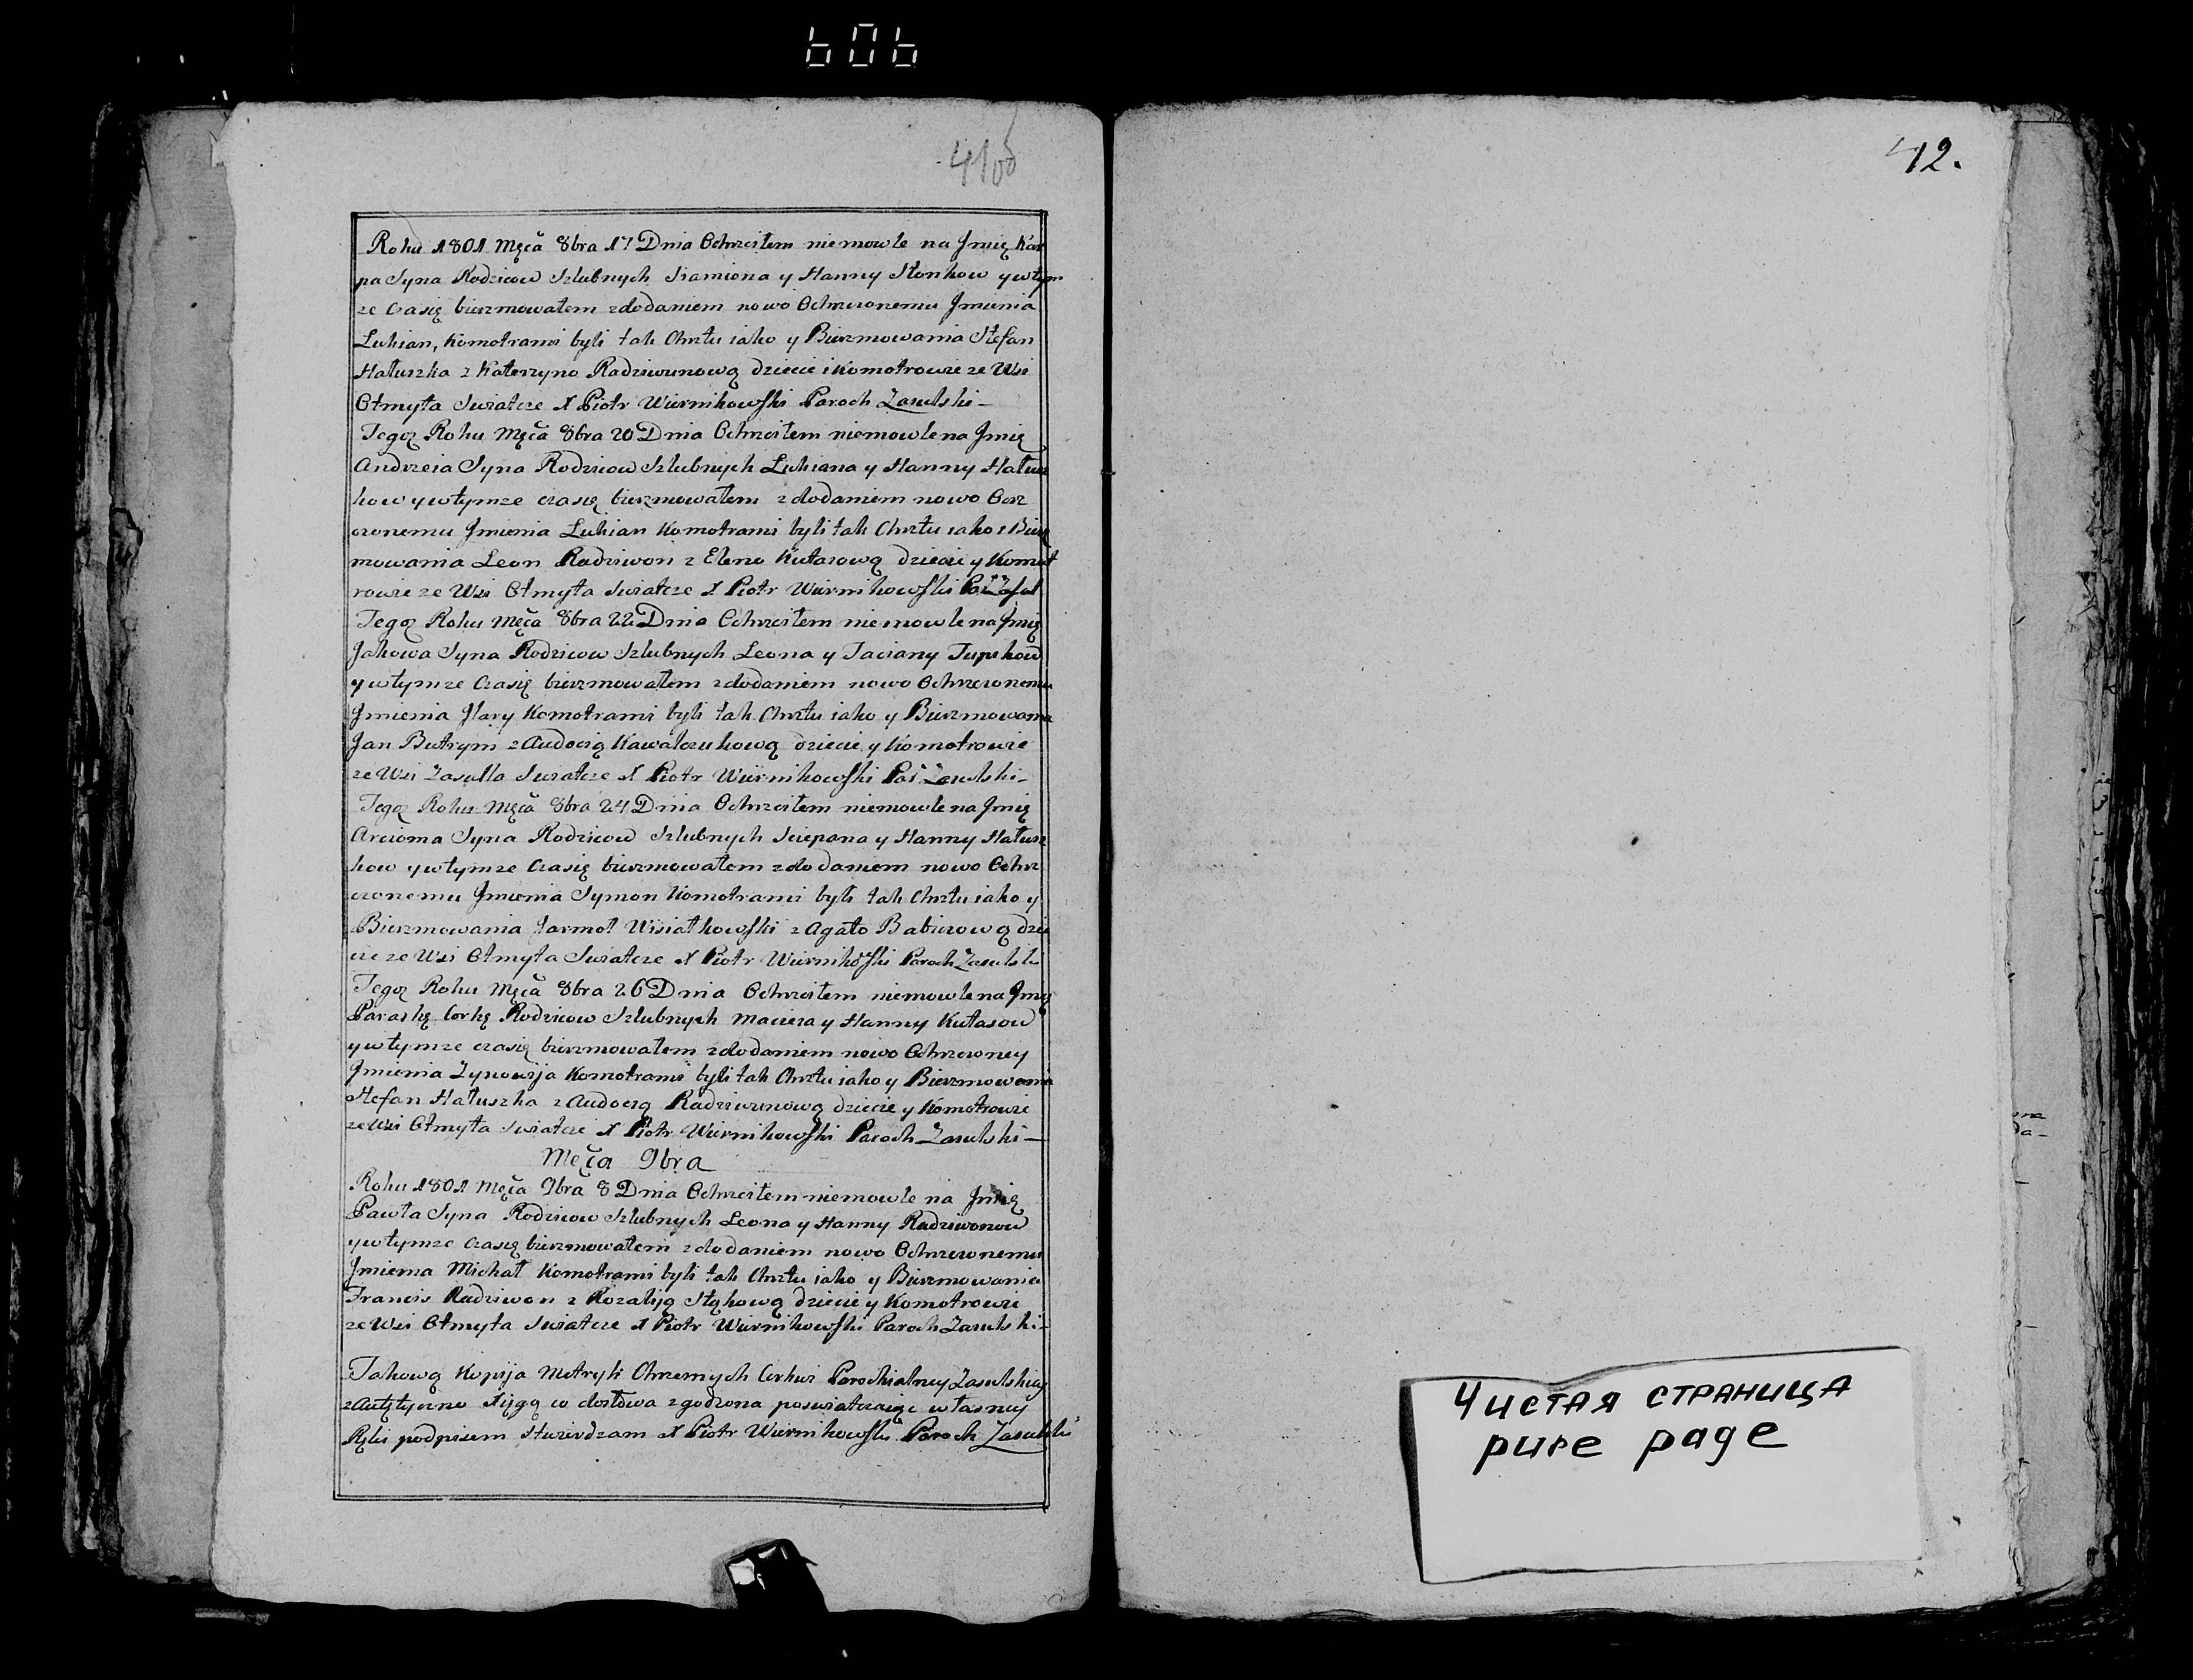 606
41 об
42.
Roku 1801 Męca 8bra 17 Dnia Ochrzciłem niemowle na Jmię Kar
pa Syna Rodzicow Szlubnych Sramiona y Hanny Słonkow y wtym
ze czasię bierzmowałem zdodaniem nowo Ochrzczonemu Jmienia
Lukian, Komotrami byli tak Chrztu iako y Bierzmowania Stefan
Hałuszka z Katerzyno Radziwunowg dziecie i Komotrowie ze Wsi
Otmyta Swiatcze X Piotr Wiernikowski Paroch Zasulski
Tegoz Roku Męca 8bra 20 Dnia Ochrzciłem niemowle na Jmię
Andrzeia Syna Rodzicow Szlubnych Lukiana y Hanny Hałusz
kow y wtymze czasię bierzmowałem zdodaniem nowo Ocrz
czonemu Jmienia Lukian Komotrami byli tak Chrztu iako i Bierz
mowania Leon Radziwon z Eleno Kutasową dziecie y Komot
rowie ze Wsi Otmyta Swiatcze X Piotr Wiernikowski Par Zasul
Tegoz Roku Męca 8bra 22 Dnia Ochrzciłem niemowle na Jmię
Jakowa Syna Rodzicow Szlubnych Leona y Taciany Tupikow
y wtymze Czasię bierzmowałem zdodaniem nowo Ochrzczonemu
Jmienia Jlary Komotrami byli tak Chrztu iako y Bierzmowania
Jan Butrym z Audocią Kawalczukową dziecie y Komotrowie
ze Wsi Zasulla Swiatcze X Piotr Wiernikowski Par Zasulski
Tegoz Roku Męca 8bra 24 Dnia Ochrzciłem niemowle na Jmię
Arcioma Syna Rodzicow Szlubnych Sciepana y Hanny Hałusz
kow y wtymze Czasię bierzmowałem zdodaniem nowo Ochrz
czonemu Jmienia Symon Komotrami byli tak Chrztu iako y
Bierzmowania Jarmoł Wisiatkowski z Agato Babirową dzie
cie ze Wsi Otmyta Swiatcze X Piotr Wiernikowski Paroch Zasulski
Tegoz Roku Męca 8bra 26 Dnia Ochrzciłem niemowle na Jmię
Paraskę Corkę Rodzicow Szlubnych Macieia y Hanny Kutasow
y wtymze czasię bierzmowałem zdodaniem nowo Ochrzczoney
Jmienia Zynowija Komotrami byli tak Chrztu iako y Bierzmowania
Stefan Hałuszka z Audocią Radziwunową dziecie y Komotrowie
ze Wsi Otmyta Swiatcze X Piotr Wiernikowski Paroch Zasulski
Męca 9bra
Roku 1801 Męca 9bra 8 Dnia Ochrzciłem niemowle na Jmię
Pawła Syna Rodzicow Szlubnych Leona y Hanny Radziwonow
y wtymze czasię bierzmowałem zdodaniem nowo Ochrzczonemu
Jmienia Michał Komotrami byli tak Chrztu iako y Bierzmowania
Francis Radziwon z Rozaliją Stąkową dziecie y Komotrowie
ze Wsi Otmyta Swiatcze X Piotr Wiernikowski Paroch Zasulski
Takową Kopija Metryk Chrzesnych Cerkwi Parochialney Zasulskiey
z Autętyczno Xijgą co dosłowa zgodzona poswiatczaiąc własney
Ręki podpisem stwierdzam X Piotr Wiernikowski Paroch Zasulski
Чистая страница
pure page